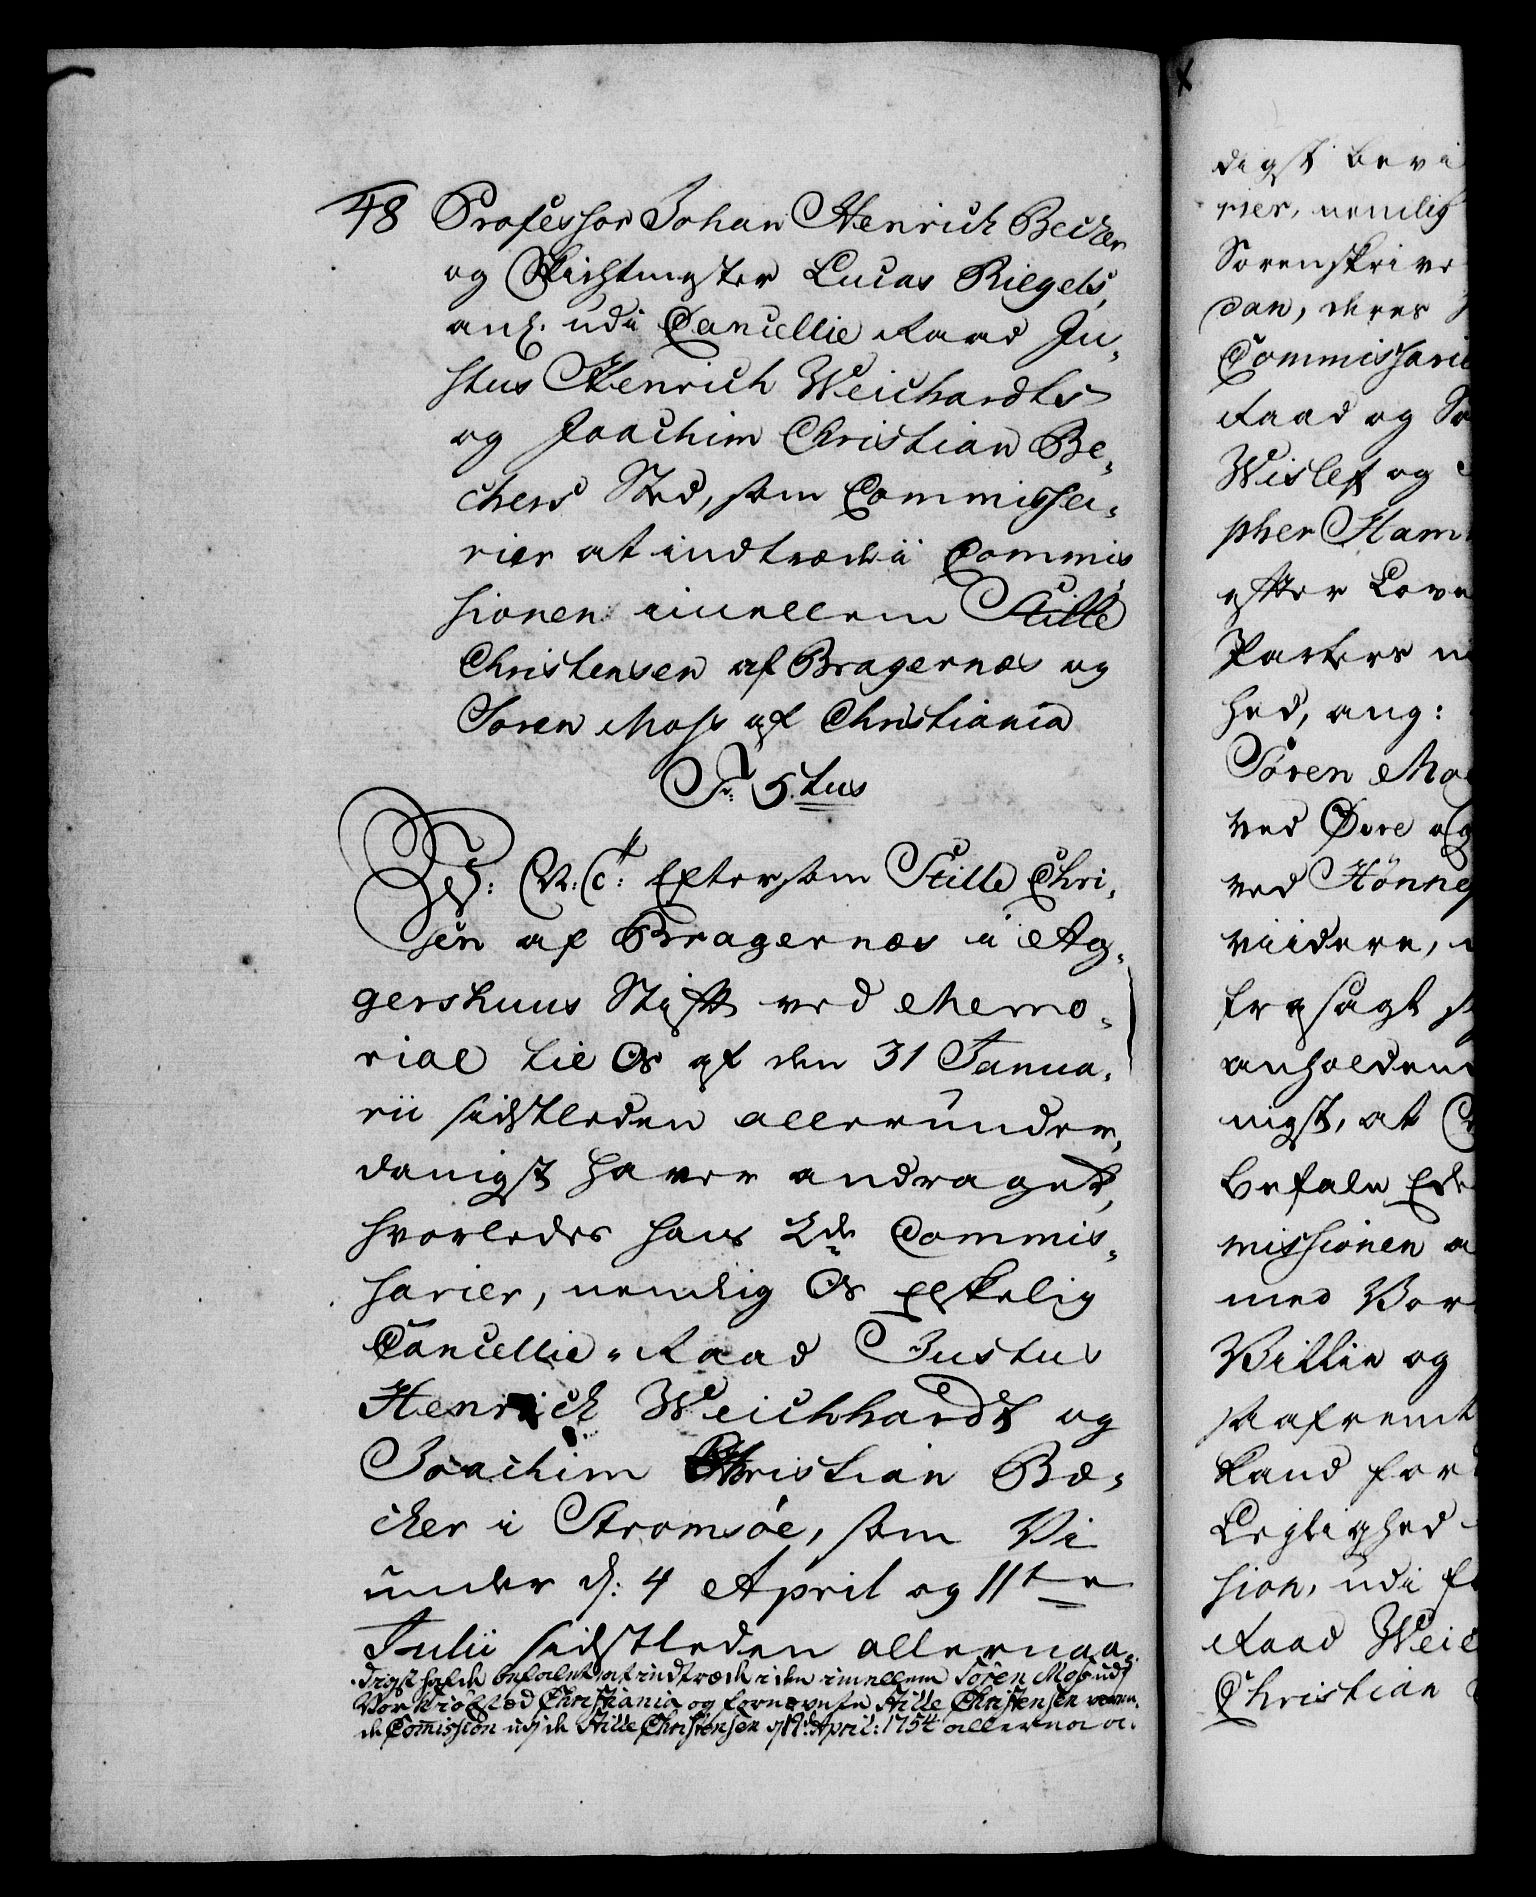 48 Professor Johan Henrich Becker
og Slichtmester Lucas Riegels,
anl. udi Cancellie Raad Ju-
stus Henrich Weichardts
og Joachim Christian Be-
chers Sted, som Commissa-
rier at indtræde i Commis
sionen imellem Stille
Christensen af Bragernæs og
Søren Moss af Christiania
Fr: 5.tus
G: V: C: Eftersom Stille Chri-
sen af Bragernæs i Ag-
gershuus Stift ved Memo-
rial til Os af den 31 Janua-
rii sidstleden allerunder-
danigst haver andraget,
hvorledes hans 2de Commis-
sarier, nemlig Os Elskelig
Cancellie-Raad Justus
Henrich Weichhardt og
Joachim Christian Be-
cker i Stromsøe, som Vi
under d: 4 April og 11te
Julii sidstleden allernaa-
digst hafde befalet at indtræde i den imellem Søren Moss udi
Vor Kiøbsted Christiania og fornevnte Stille Christensen væren-
de Comission udi de Stille Christensen d 19 April: 1754 allernaa-
digst bevi
rier, nemlig
Sorenskrive
dan, deres
Commissarie
Raad og So
Wisløf og
pher Ham
efter Love
Parters
hed, ang:
Søren Mo
ved Øvre Eg
ved Hønne
viidere,
frasagt
anholden
nigst, at
befale
missionen
med Vor
Villie og
saafremt
kand for
Leylighed
sion, udi
Raad Wei
Christian